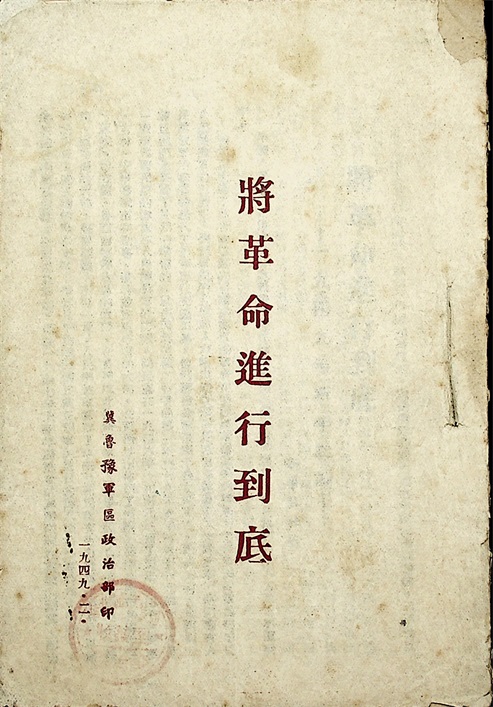 將革命進行到底
冀魯豫軍區政治部印
一九四九·二·